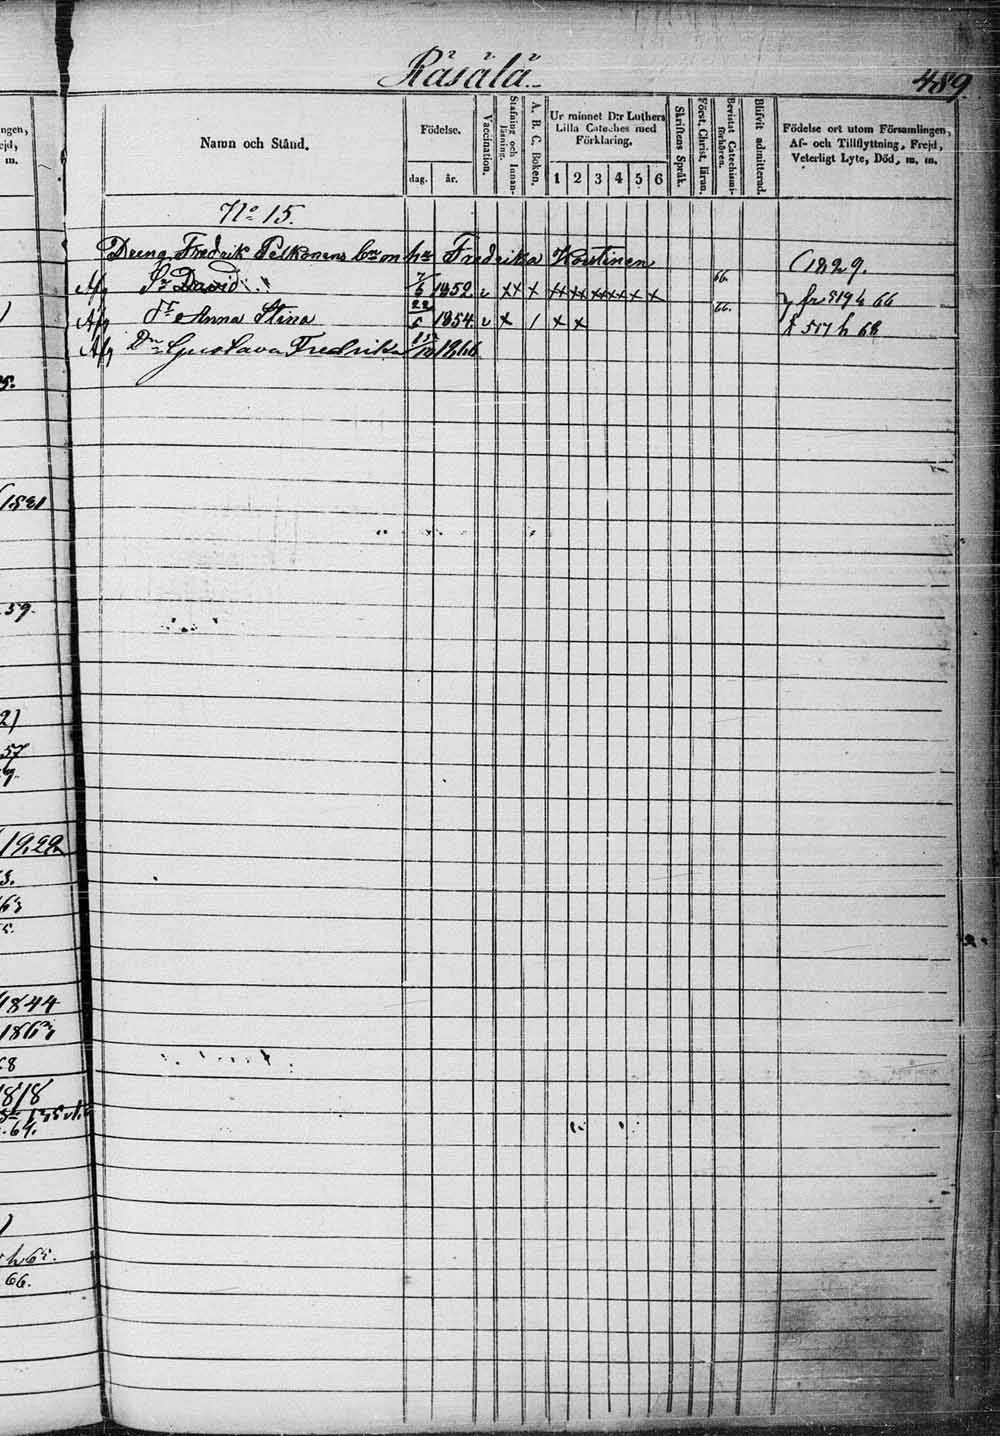 Räsälä
489.
Namn och Stånd.
Födelse.
dag. år.
Vaccination.
Stafning och Innanläsning.
A. B. C. Boken.
Ur minnet D:r Luthers Lilla Cateches med Förklaring.
1 2 3 4 5 6
Skriftens Språk.
Först. Christ. läran.
Bevistat Catechismiförhören.
Blifvit admitterad.
Födelse ort utom Församlingen,
Af- och Tillflyttning, Frejd,
Veterligt Lyte, Död, m. m.
No 15.
Dreng Fredrik Pelkonens hr Fredrika Koutinen (1829.
Afg Sr David 7/6 1852. v xx x xx xx xx x x x 66. fr 519 h 66
Afg Fr Anna Stina 22/5 1854. v x / x x 66. 517 h 68
Afg Dr Gustava Fredrika 1866
ngen,
ejd,
m.
)
5.
(1831
59.
2)
57
1822
3.
63
1844
1863
68
1818
64.
)
h 65.
66.